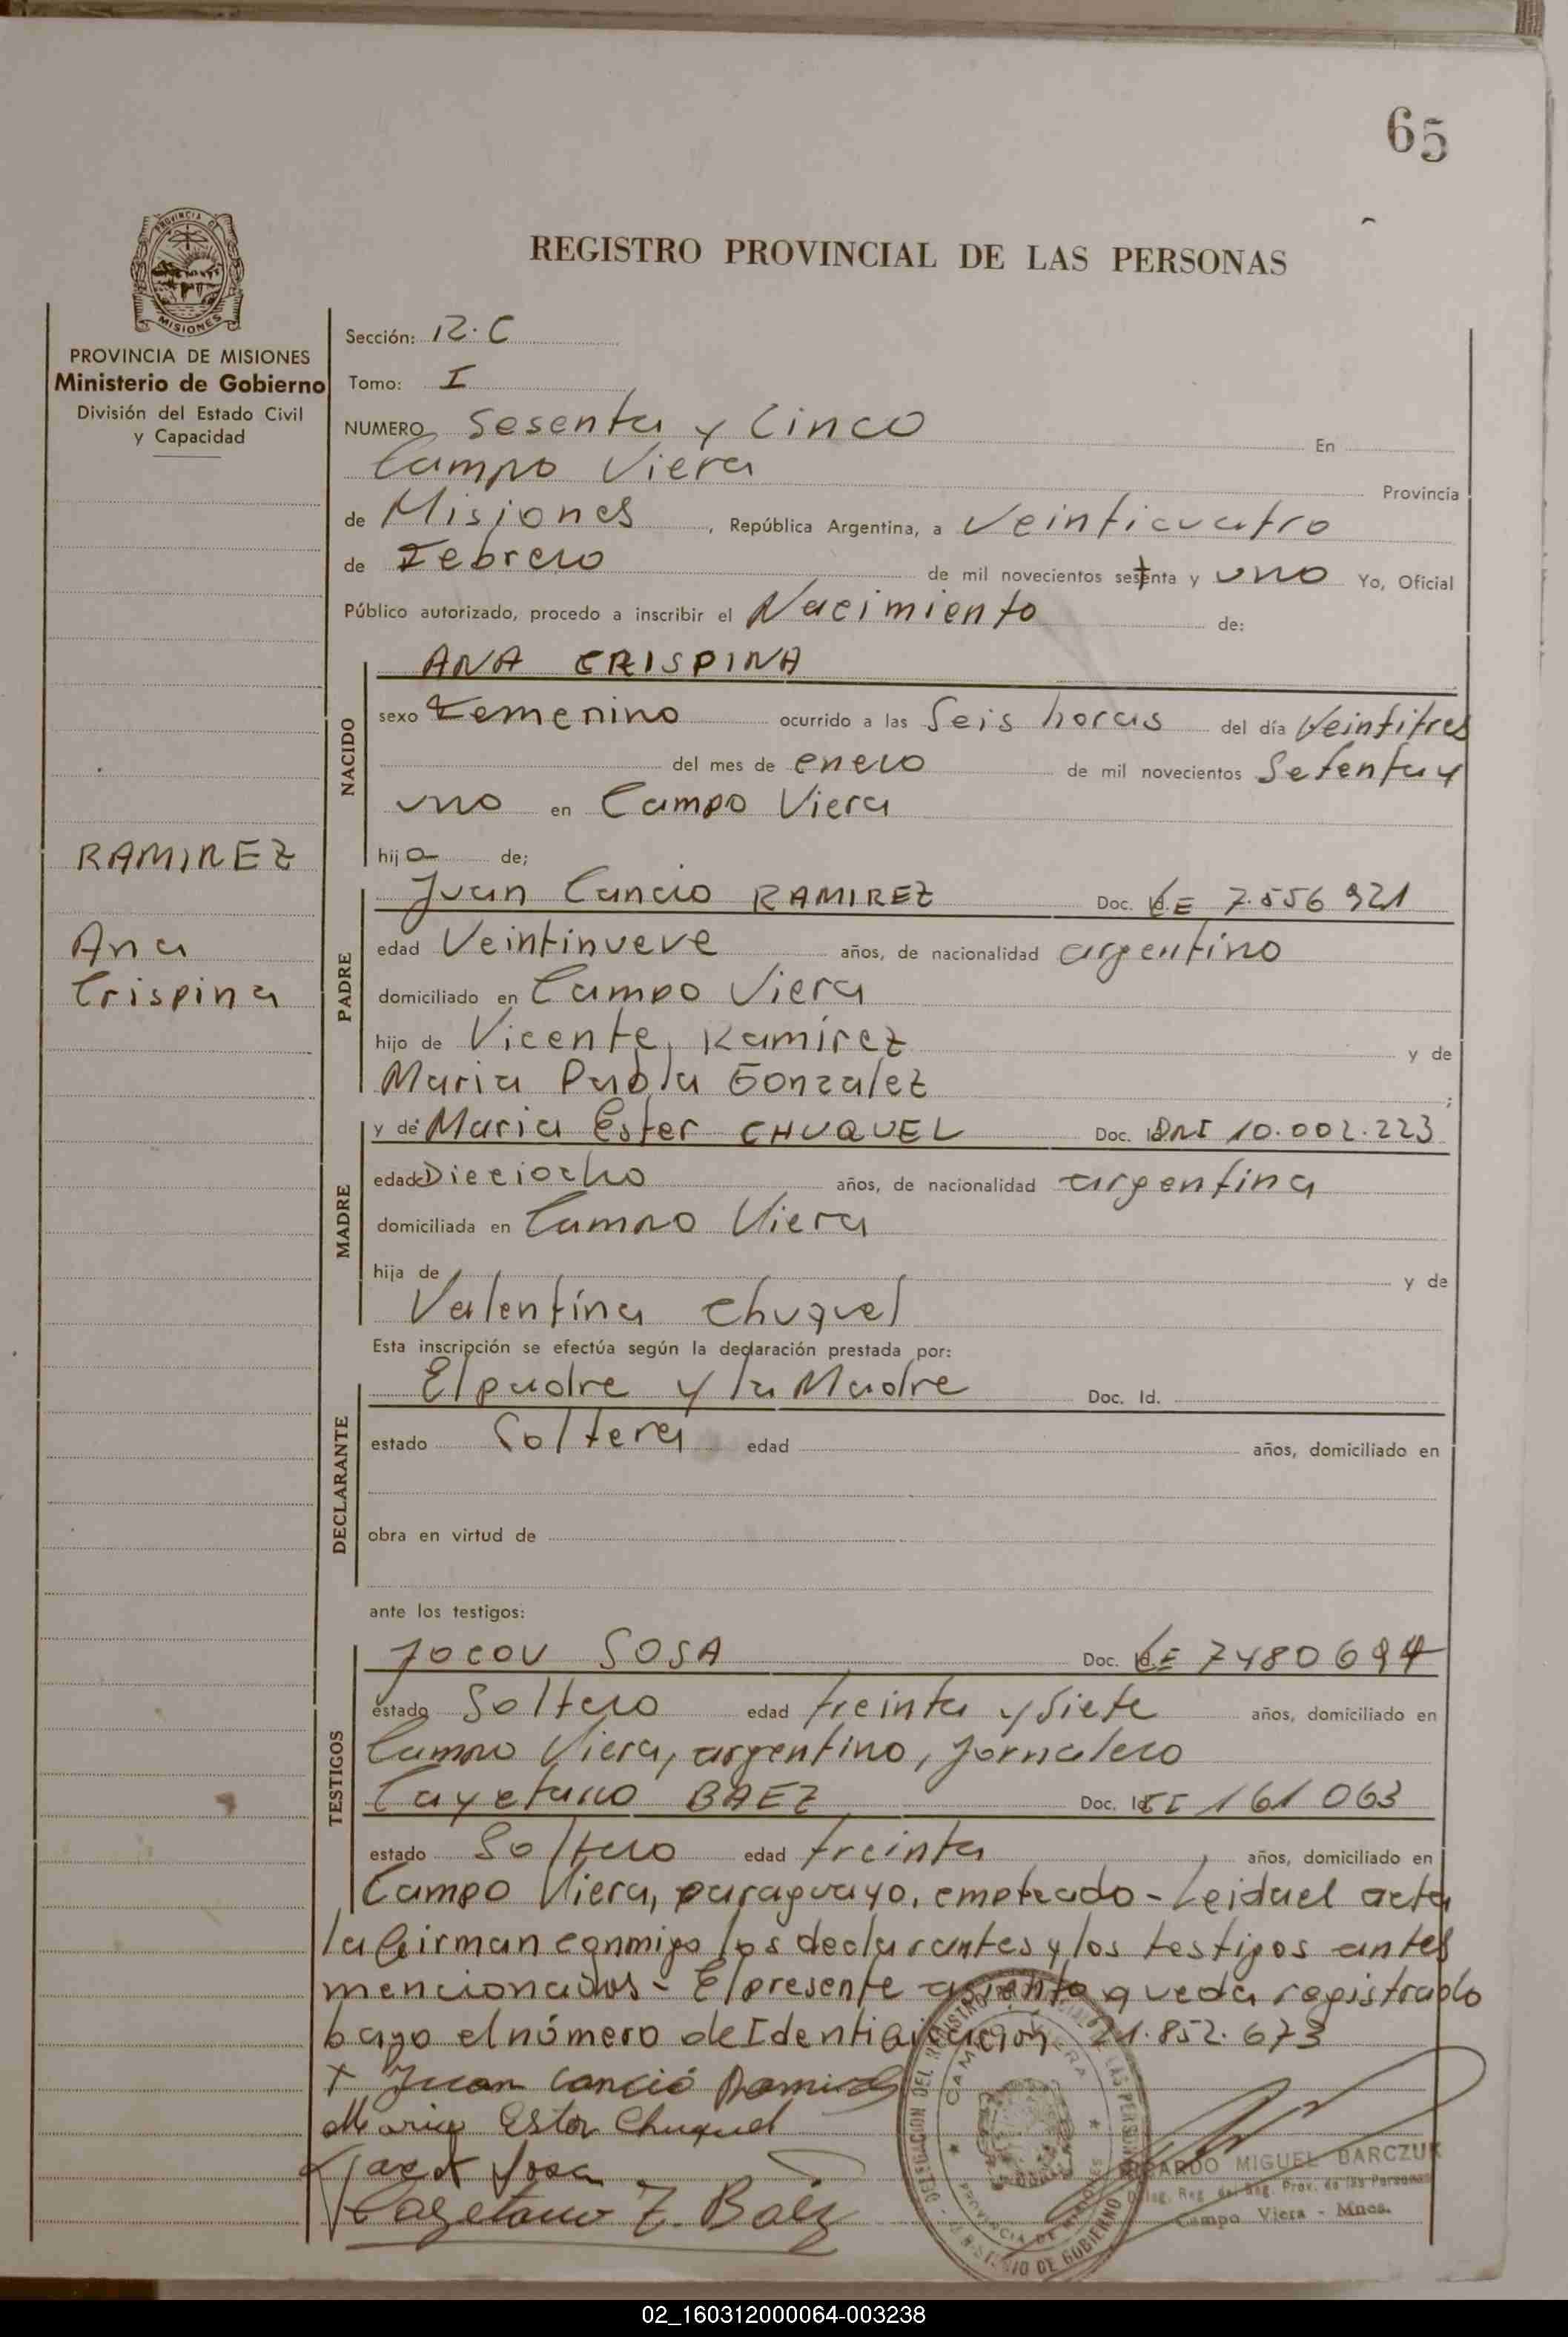 65
REGISTRO PROVINCIAL DE LAS PERSONAS
PROVINCIA DE MISIONES
Ministerio de Gobierno
División del Estado Civil
y Capacidad
Sección: R.C
Tomo: I
NUMERO Sesenta y Cinco En
Campo Viera Provincia
de Misiones, República Argentina, a Veinticuatro
de Febrero de mil novecientos setenta y uno Yo, Oficial
Público autorizado, procedo a inscribir el Nacimiento de:
NACIDO
ANA CRISPINA
sexo Femenino ocurrido a las Seis horas del día Veintitres
del mes de enero de mil novecientos Setenta y
uno en Campo Viera
hija de;
RAMIREZ
Ana
Crispina
PADRE
Juan Cancio RAMIREZ Doc. LE 7.556 921
edad Veintinueve años, de nacionalidad argentino
domiciliado en Campo Viera
hijo de Vicente Ramírez y de
Maria Pabla Gonzalez ;
MADRE
y de Maria Ester CHUQUEL Doc. DNI 10.002.223
edad Dieciocho años, de nacionalidad argentina
domiciliada en Campo Viera
hija de y de
Valentína Chuquel
Esta inscripción se efectúa según la declaración prestada por:
DECLARANTE
El padre y la Madre Doc. Id.
estado Soltera edad años, domiciliado en
obra en virtud de
ante los testigos:
TESTIGOS
Jocov SOSA Doc. LE 7480694
estado Soltero edad treinta y Siete años, domiciliado en
Campo Viera, argentino, Jornalero
Cayetano BAEZ Doc. Id CI 161 063
estado Soltero edad treinta años, domiciliado en
Campo Viera, paraguayo, empleado - Leida el acta
la firman conmigo los declarantes y los testigos antes
mencionados - El presente asiento queda registrado
bajo el número de Identificación 21.852.673
Juan Cancio Ramirez
Maria Ester Chuquel
Jacob Sosa
Cayetano Z. Baéz
CAMPO VIERA
PROVINCIA DE MISIONES
RICARDO MIGUEL BARCZUK
Deleg. Reg. del Reg. Prov. de las Personas
Campo Viera - Mnes.
02_160312000064-003238